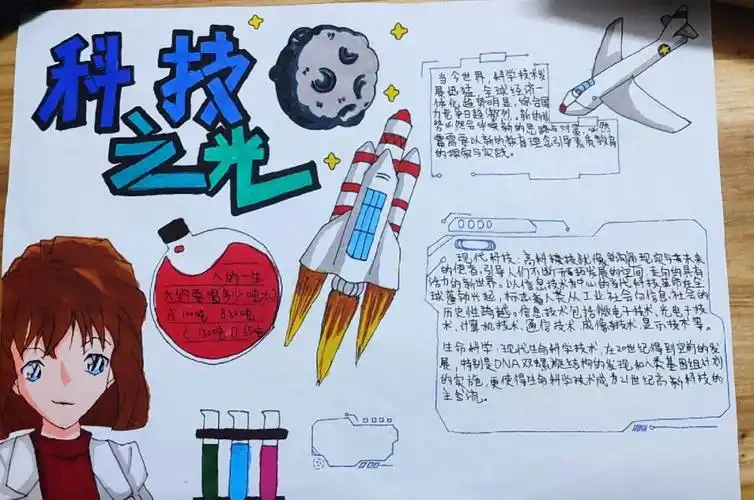 科技
之光
当今世界，科学技术发
展迅猛，全球经济一
体化趋势明显，综合国
力竞争日趋激烈。新的形
势必然会呼唤新的思路与对策，必然
需要以新的教育理念引导素质教育
的探索与实践。
人的一生
大约要喝多少吨水？
A 100吨 B 80吨
C 1500吨 D 65吨
现代科技、高科技就像沟通现实与未来
的使者，引导人们不断开拓发展的空间，走向具有
活力的新世界。以信息技术为中心的当代科技革命在全
球蓬勃兴起，标志着人类从工业社会向信息社会的
历史性跨越。信息技术包括微电子技术、光电子技
术、计算机技术、通信技术、成像技术、显示技术等。
生命科学：现代生命科学技术，在20世纪得到空前的发
展，特别是DNA双螺旋结构的发现和人类基因组计划
的实施，更使得生命科学技术成为21世纪高新科技的
主力流。